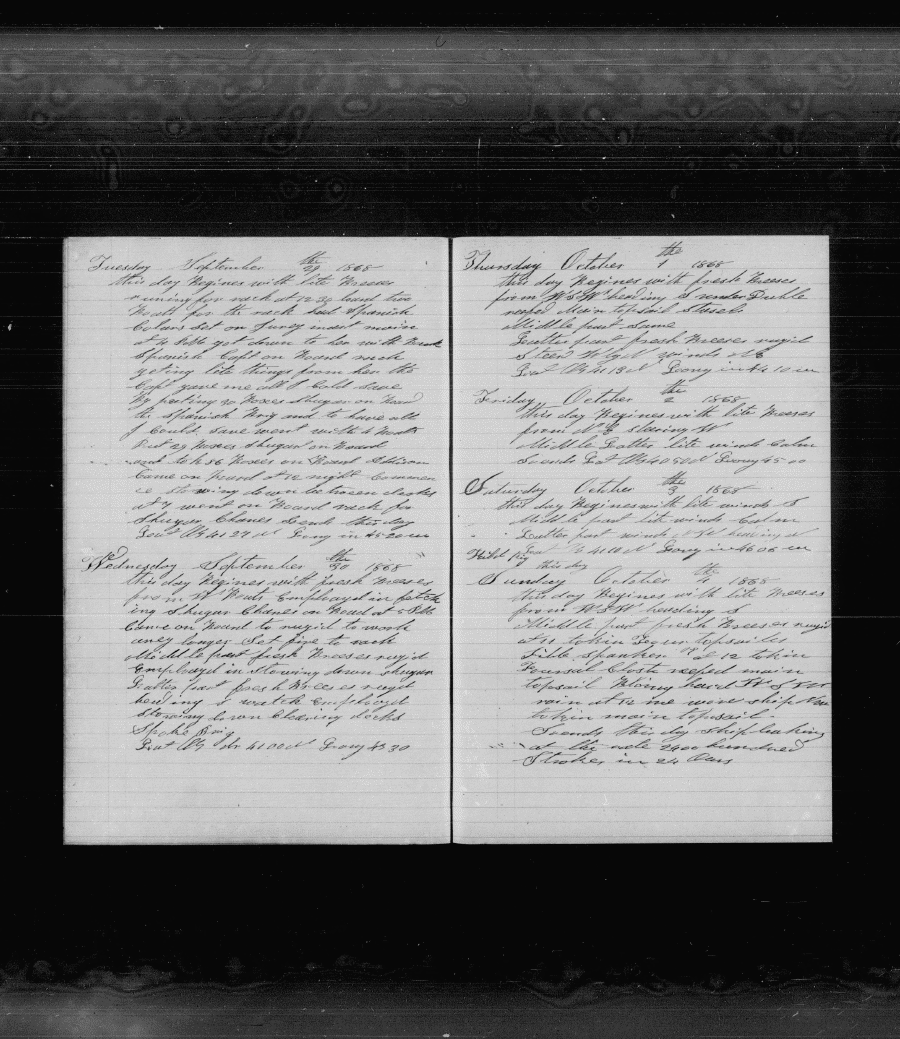 Tuesday September 29th 1868
this day Begines with lite Breeses
runing for reck at 12.30 loard two
Boats for the reck had Spanish
Colurs Set on Jurey mast
at 4 got down to her with Boats
Spanish Capt on Board reck
geting lite things from her the
Capt gave me all I Could Save
by puting 20 Boxes Shugar on Board
the Spanish Brig and to have all
I Could Save went with 4 Boats
Put 29 Boxes Shugar on Board
and took 86 Boxes on Board
Came on Board at 12 night Commen
ce Stowing down between decks
at 4 went on Board reck for
Shugar Chanes this day
Lat By 41 29 N Long in 45 20 W
Wednesday September 30th 1868
this day Begines with fresh Breeses
from W Boats Employd in fetch
ing Shugar Chanes on Board at 5
Came on Board to rugid to work
aney longer Set fire to reck
Middle part fresh Breeses rugid
Employd in Stowing down Shugar
Latter part fresh Breeses rugid
heading S watch Employd
Stowing down Clearing decks
Spoke Brig
Lat By 41 00 N Long 45 30
Thursday October 1th 1868
this day Begines with fresh Breeses
from WSW heading S under Duble
reeped Main topsail
Middle part Same
Latter part fresh Breeses rugid
Steed winds
Lat By 41 18 N Long in 44 10 W
Friday October 2th 1868
this day Begines with lite Breeses
from
Middle Latter lite winds Calm
So ends Lat By 40 50 N Long 45 00
Saturday October 3th 1868
this day Begines with lite winds S
Middle part lite winds Calm
Latter part winds heading
Kild pig Lat By 41 01 N Long in 46 06 W
this day
Sunday October 4th 1868
this day Begines with lite Breeses
from WSW heading S
Middle part fresh Breeses rugid
at 10 tokin topsailes
Jibb Spanker at 12 tokin
Foursal Close reeped main
topsail Bloing hard
rain at 12 me wore Ship
tokin main topsail
So ends this day Ship leaking
at the rate 2400 hundred
Strokes in 24 Ours